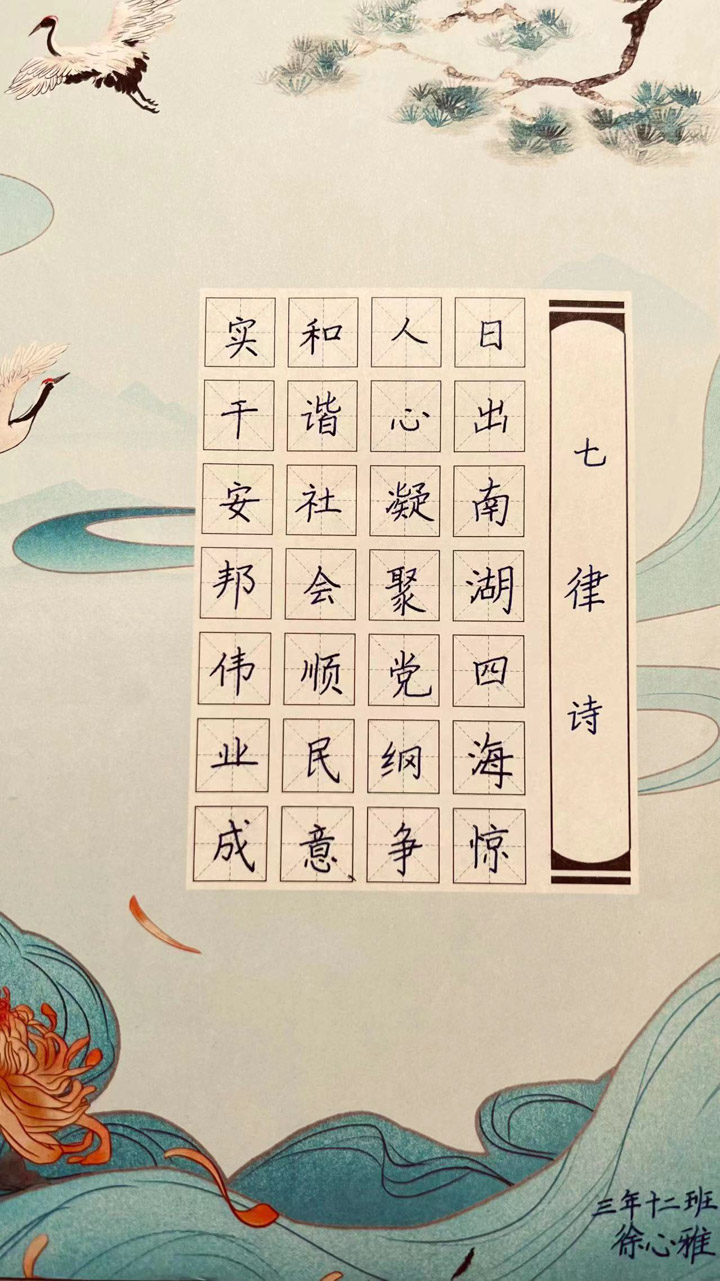 七律诗
日出南湖四海惊
人心凝聚党纲争
和谐社会顺民意
实干安邦伟业成
三年十二班
徐心雅